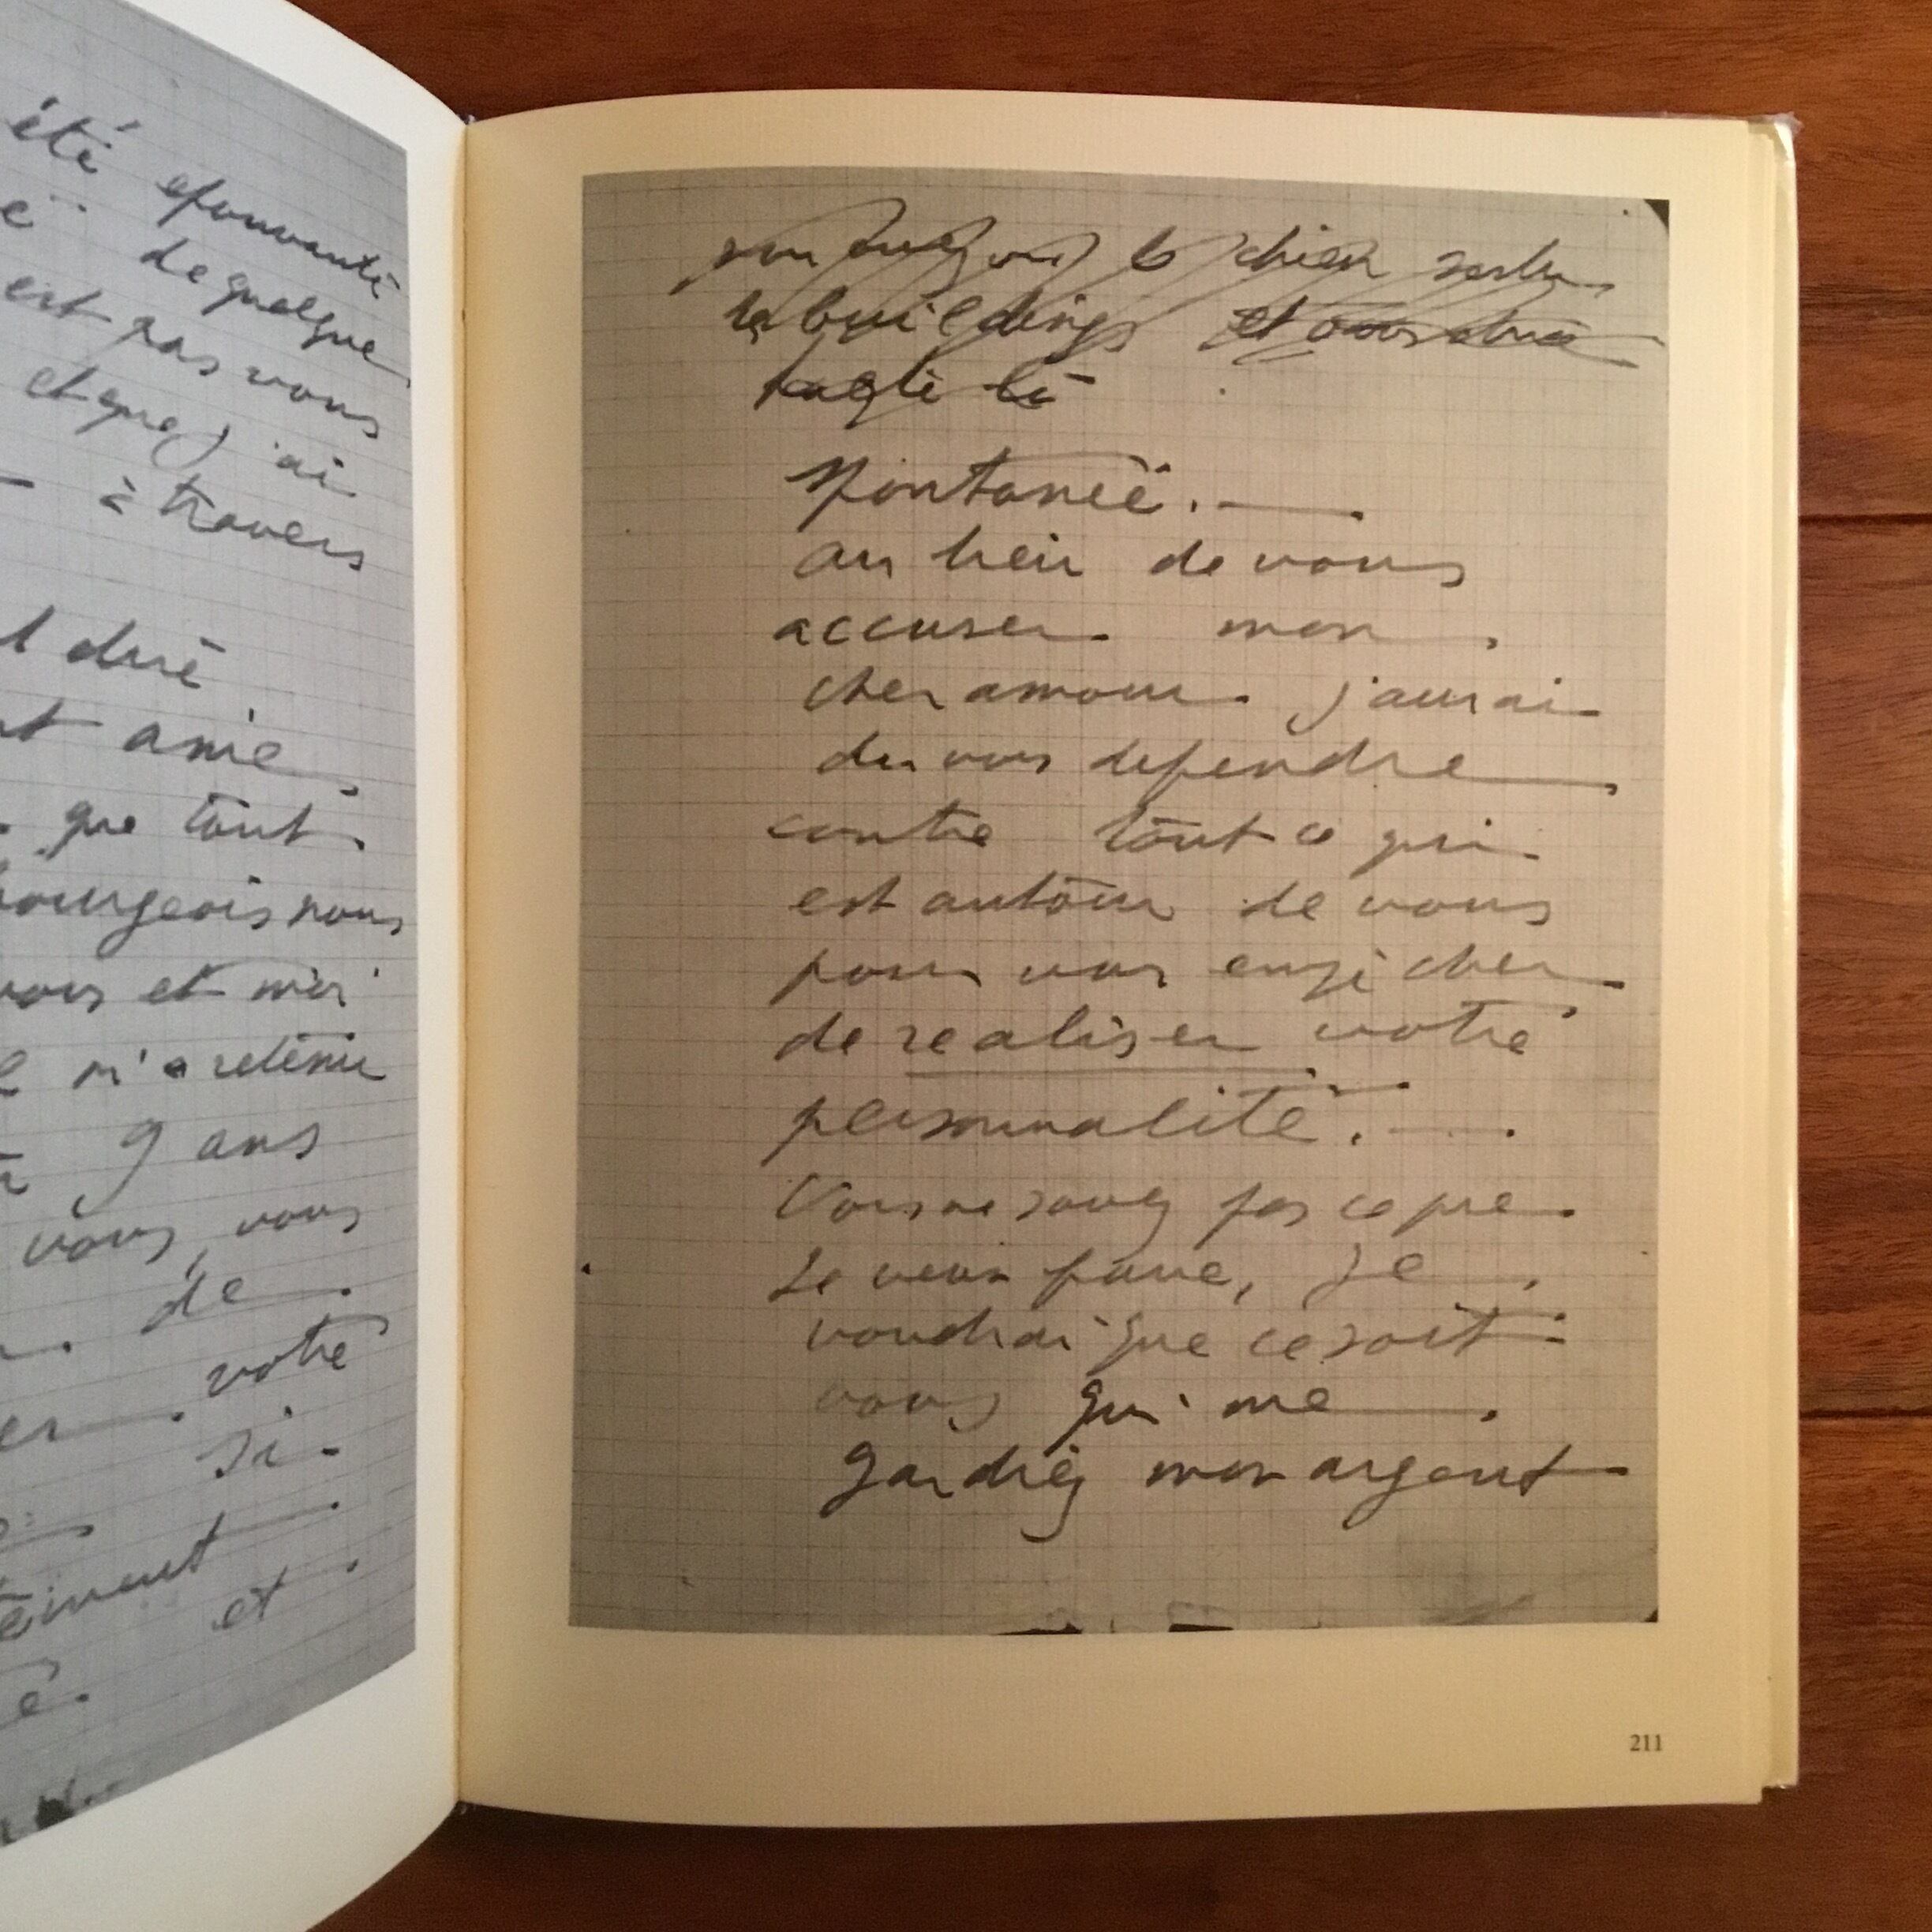 été epouvanté
de quelque
est pas vous
et que j'ai
à travers
duré
amie
que tout
bourgeois nous
vous et moi
m'a retenu
9 ans
vous, vous
de
votre
er
si
et
le chien
les buildings et
spontanée. —
au lieu de vous
accuser mon
cher amour j'aurai
du vous defendre
contre tout ce qui
est autour de vous
pour vous empêcher
de realiser votre
personnalité. —
Vous ne savez pas ce que
Je veux faire, Je
voudrai que ce soit
vous qui me
gardiez mon argent
211